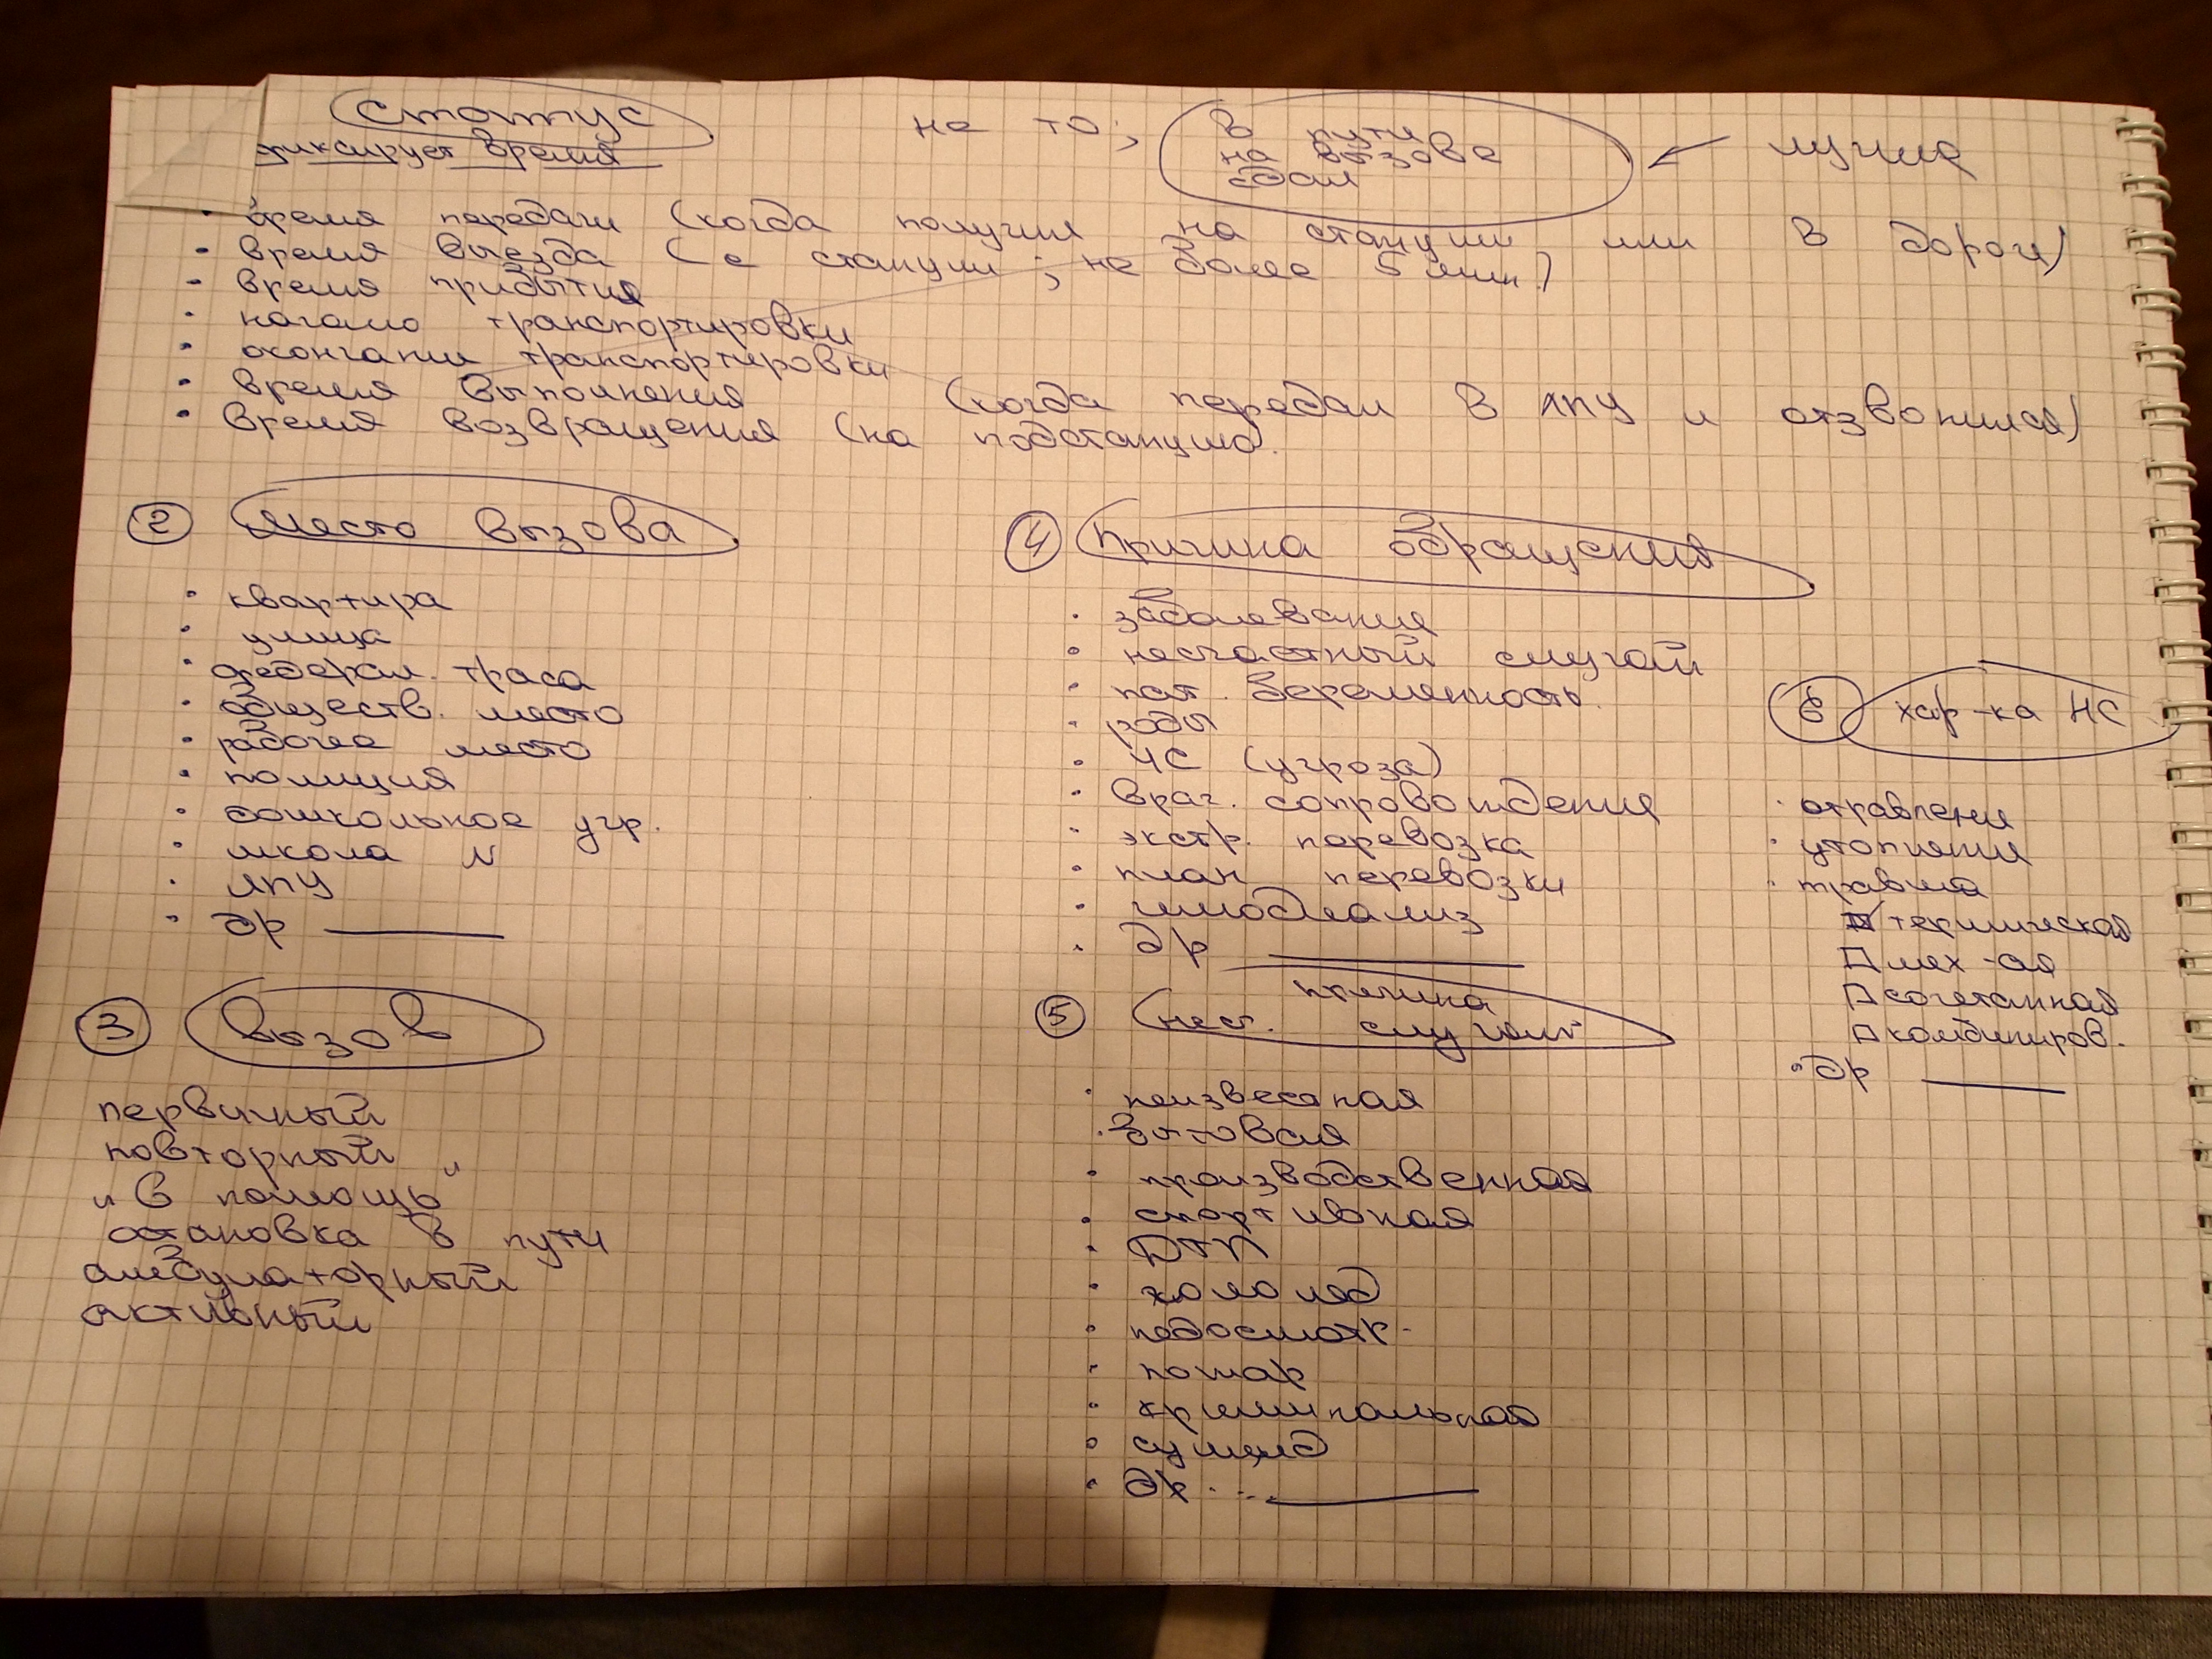 Статус
фиксирует время
не то;
В пути
на вызове
сдал
← лучше
• время передачи (когда получил на станции или в дороге)
• время выезда (с станции; не более 5 мин.)
• время прибытия
• начало транспортировки
• окончание транспортировки
• время выполнения (когда передал в ЛПУ и отзвонился)
• время возвращения (на подстанцию).
② Место вызова
• квартира
• улица
• федерал. траса
• обществ. место
• рабочее место
• полиция
• дошкольное учр.
• школа N
• ЛПУ
• др ____
③ Вызов
первичный
повторный
"в помощь"
остановка в пути
амбулаторный
активный
④ Причина обращения
• заболевания
• несчастный случай
• пат. беременность
• роды
• ЧС (угроза)
• врач. сопровождения
• экстр. перевозка
• план перевозки
• гемодиализ
• др ____
⑤ причина
несч. случая
• неизвестная
• бытовая
• производственная
• спортивная
• ДТП
• гололед
• недосмотр.
• пожар
• криминальная
• суицид
• др... ____
⑥ хар-ка НС
• отравления
• утопления
• травма
☑ термическая
□ мех-ая
□ сочетанная
□ комбиниров.
• др ____